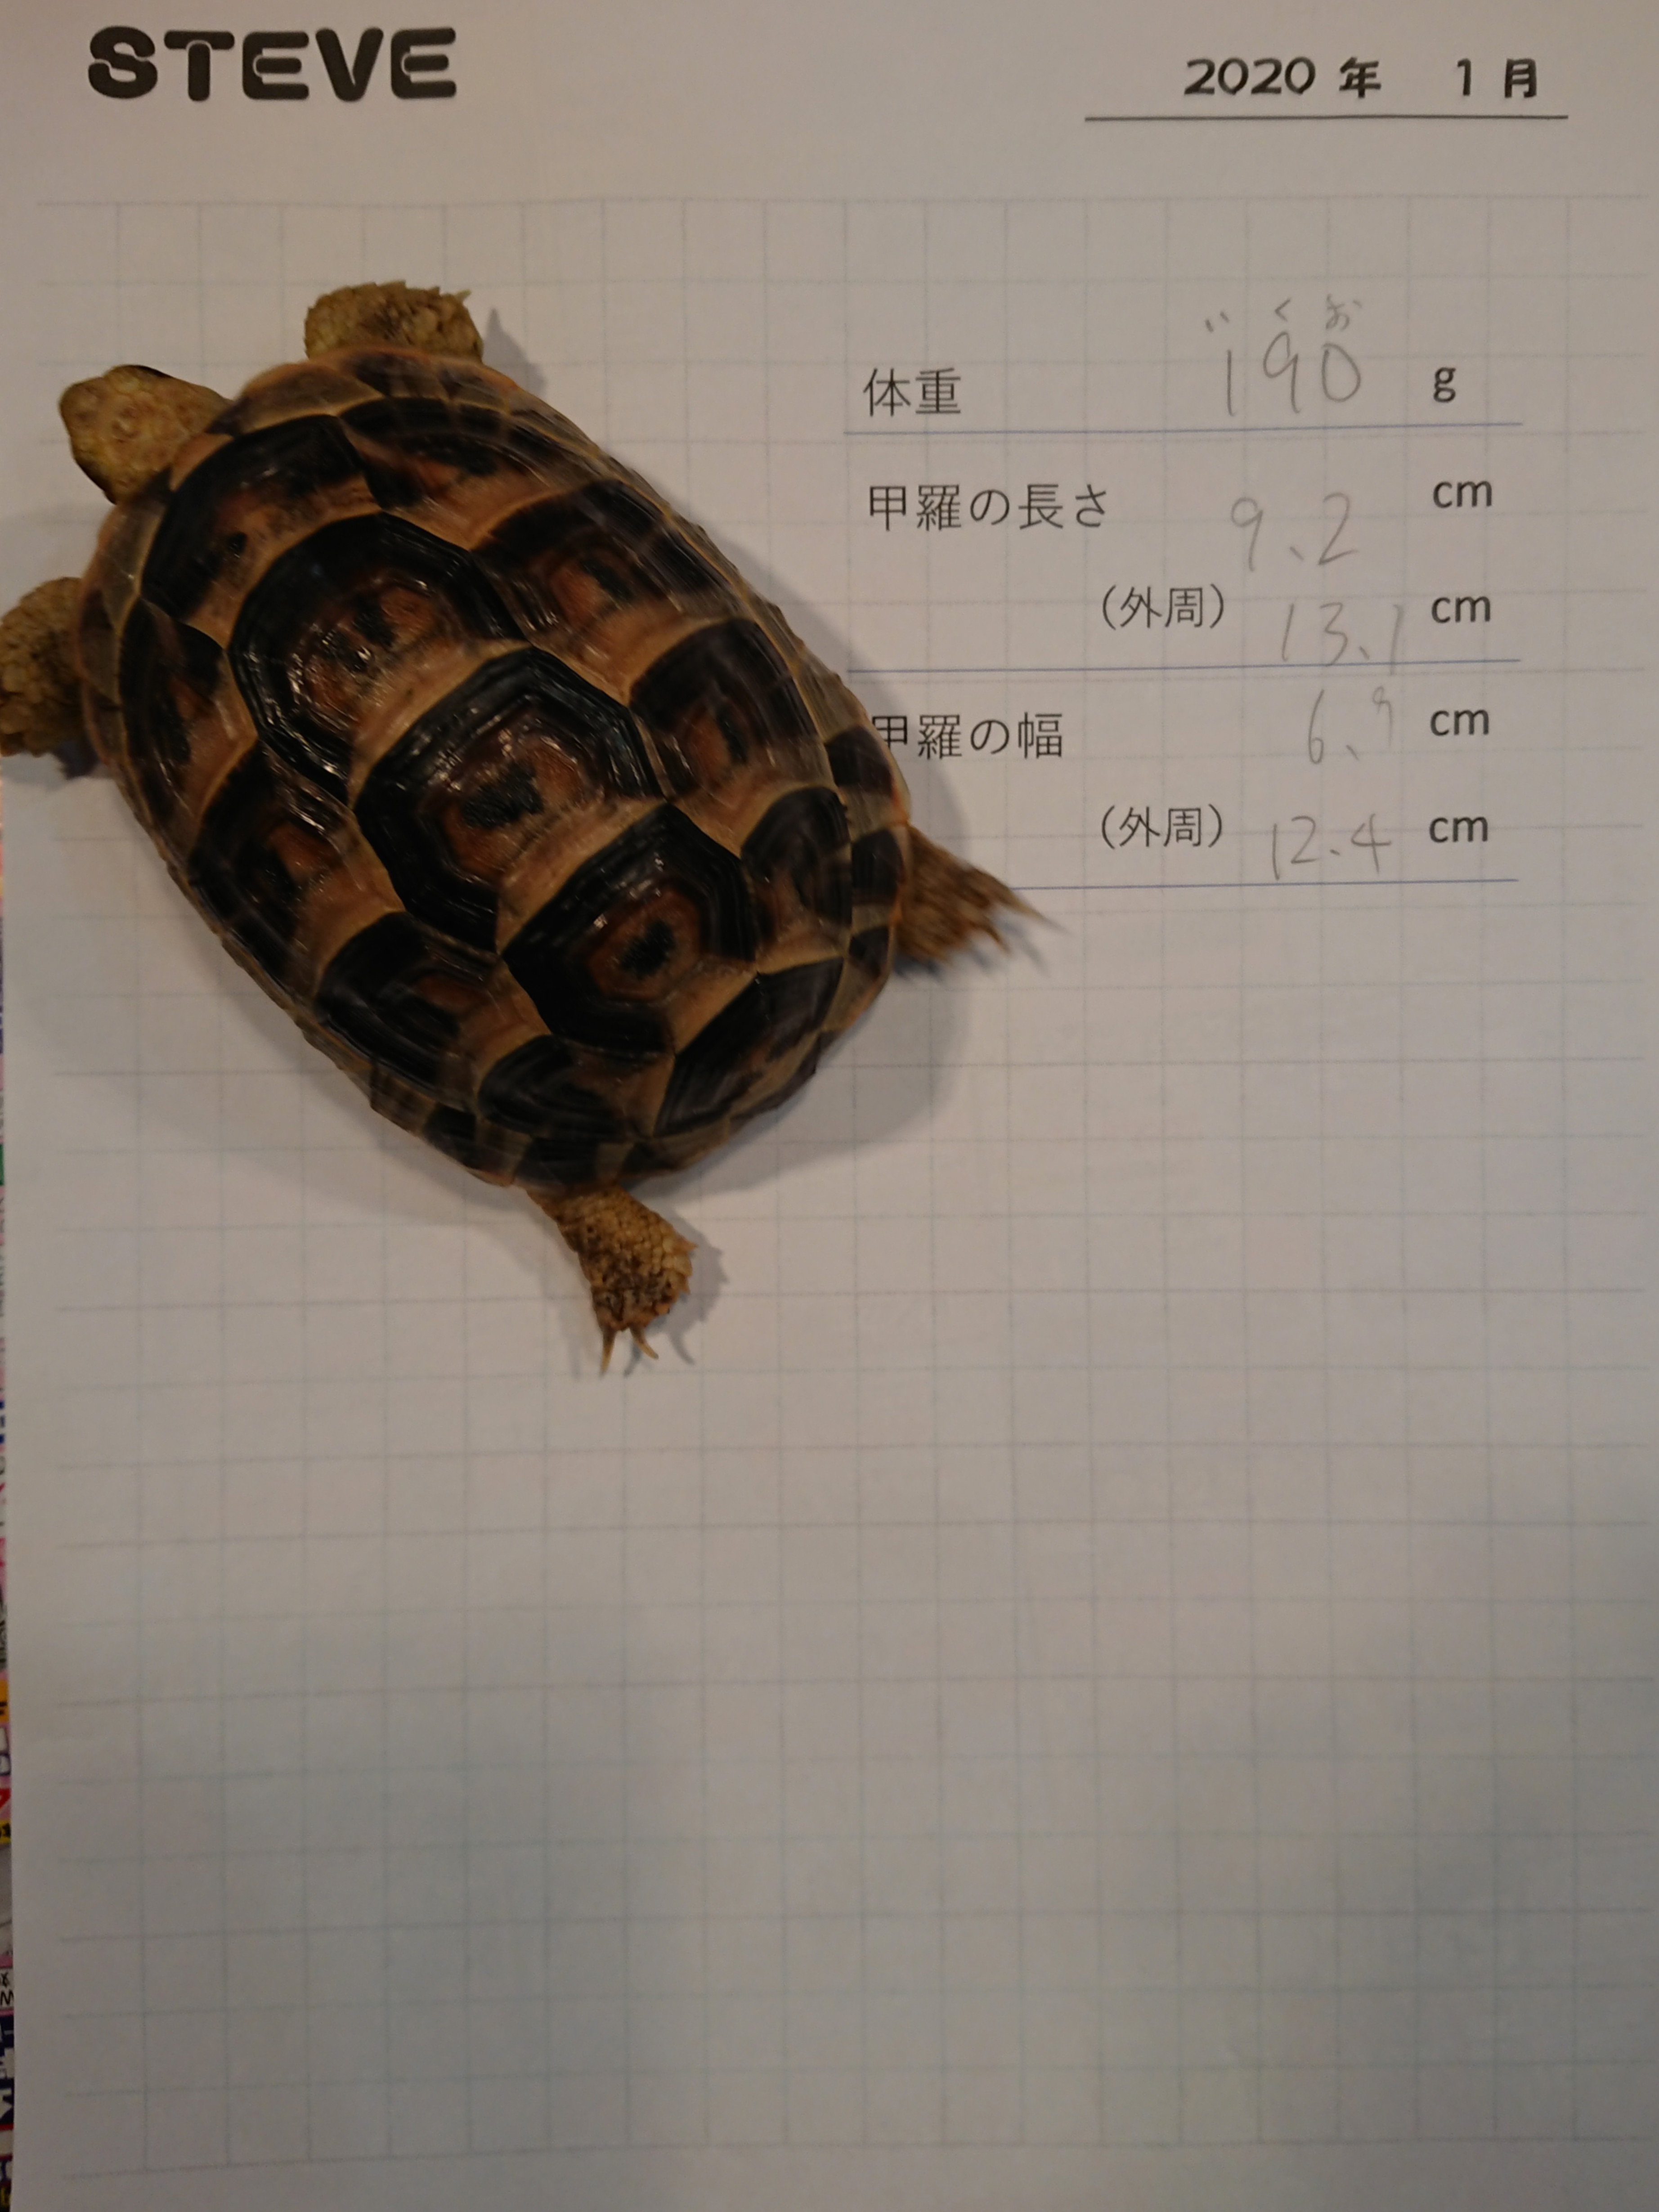 STEVE
2020 年 1 月
いくお
体重 190 g
甲羅の長さ 9.2 cm
（外周） 13.1 cm
甲羅の幅 6.9 cm
（外周） 12.4 cm